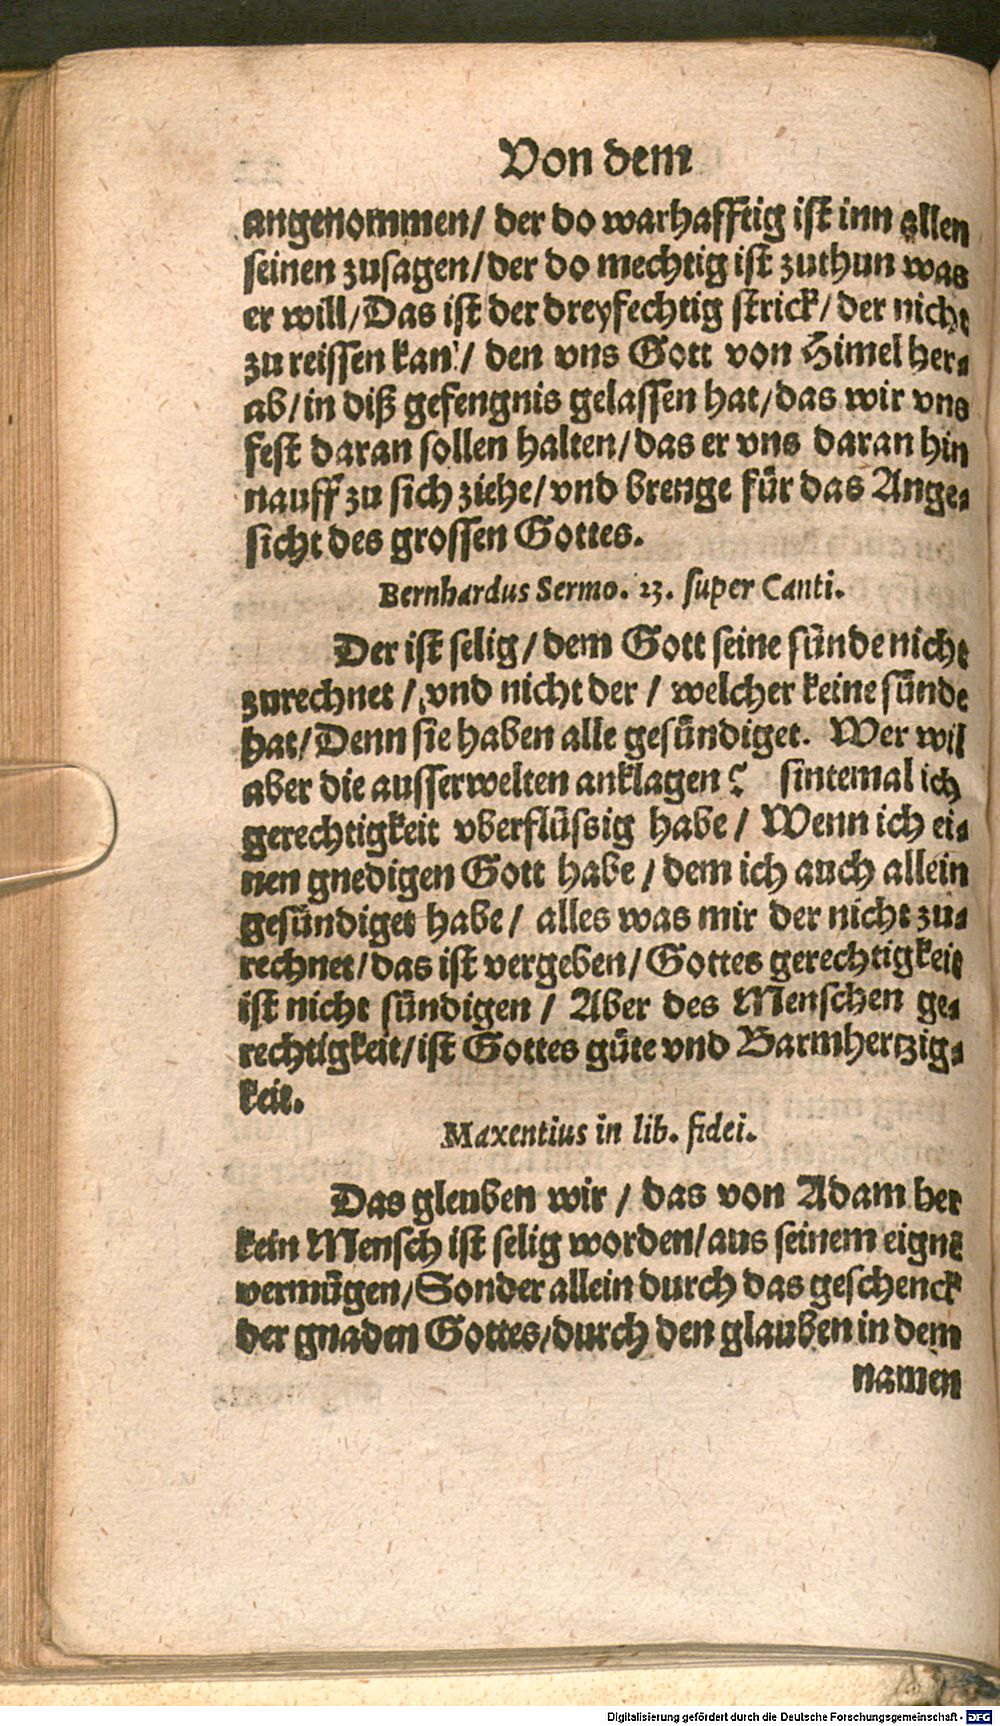 Von dem
angenommen/ der do warhafftig ist inn allen
seinen zusagen/ der do mechtig ist zuthun was
er will/ Das ist der dreyfechtig strick/ der nicht
zu reissen kan/ den vns Gott von Himel her-
ab/ in diß gefengnis gelassen hat/ das wir vns
fest daran sollen halten/ das er vns daran hin
nauff zu sich ziehe/ vnd brenge für das Ange-
sicht des grossen Gottes.
Bernhardus Sermo. 23. super Canti.
Der ist selig/ dem Gott seine sünde nicht
zurechnet/ vnd nicht der/ welcher keine sünde
hat/ Denn sie haben alle gesündiget. Wer wil
aber die ausserwelten anklagen? sintemal ich
gerechtigkeit vberflüssig habe/ Wenn ich ei-
nen gnedigen Gott habe/ dem ich auch allein
gesündiget habe/ alles was mir der nicht zu-
rechnet/ das ist vergeben/ Gottes gerechtigkeit
ist nicht sündigen/ Aber des Menschen ge-
rechtigkeit/ ist Gottes güte vnd Barmhertzig-
keit.
Maxentius in lib. fidei.
Das gleuben wir/ das von Adam her
kein Mensch ist selig worden/ aus seinem eignē
vermügen/ Sonder allein durch das geschenck
der gnaden Gottes/ durch den glauben in dem
namen
Digitalisierung gefördert durch die Deutsche Forschungsgemeinschaft - DFG